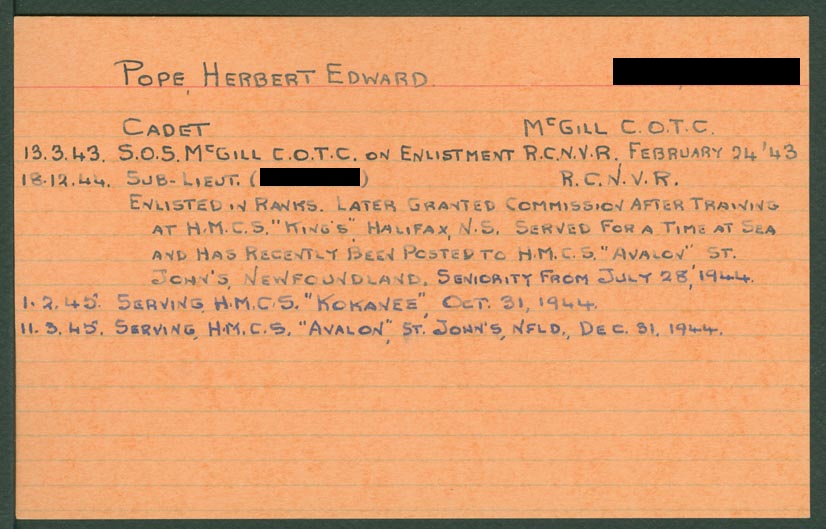 POPE, HERBERT EDWARD.
CADET McGILL C.O.T.C.
13.3.43. S.O.S. McGILL C.O.T.C. ON ENLISTMENT R.C.N.V.R. FEBRUARY 24 '43
18.12.44. SUB-LIEUT. ( ) R.C.N.V.R.
ENLISTED IN RANKS. LATER GRANTED COMMISSION AFTER TRAINING
AT H.M.C.S. "KING'S" HALIFAX, N.S. SERVED FOR A TIME AT SEA
AND HAS RECENTLY BEEN POSTED TO H.M.C.S. "AVALON" ST.
JOHN'S, NEWFOUNDLAND. SENIORITY FROM JULY 28, 1944.
1.2.45. SERVING, H.M.C.S. "KOKANEE", OCT. 31, 1944.
11.3.45. SERVING, H.M.C.S. "AVALON", ST. JOHN'S, NFLD., DEC. 31, 1944.